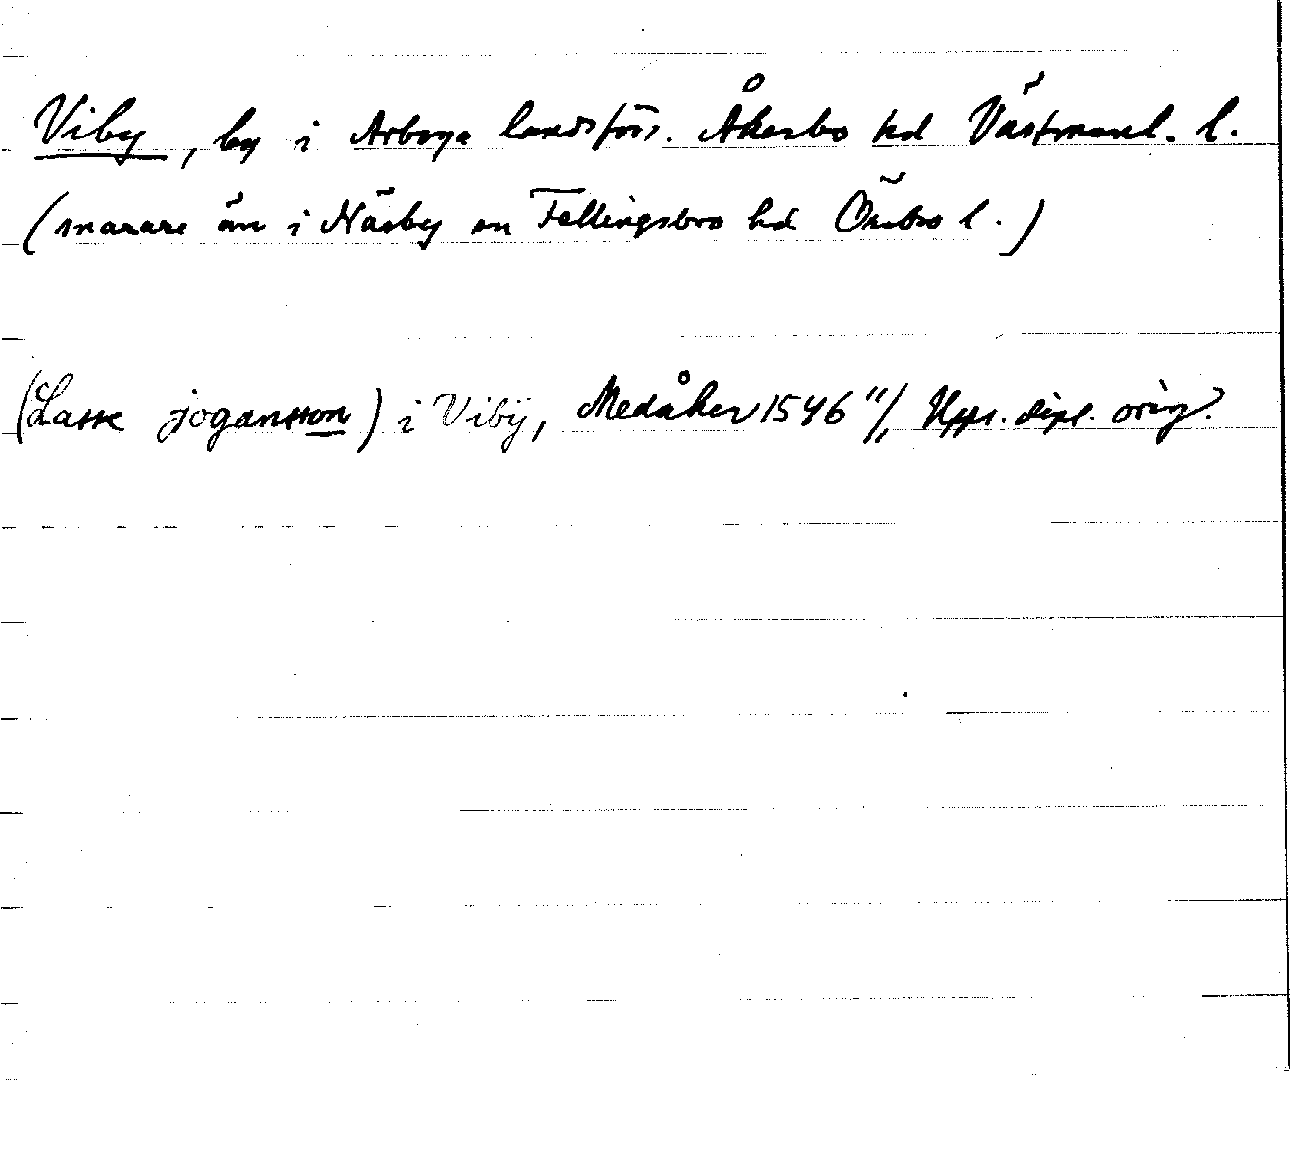 Viby, by i Arboga landsförs. Åkerbo hd Västmanl. l.
(snarare än i Näsby sn Fellingsbro hd Örebro l.)
(Lasse jogansson) i Vibÿ, Medåker 1546 11/11 Upps. dipl. orig.?